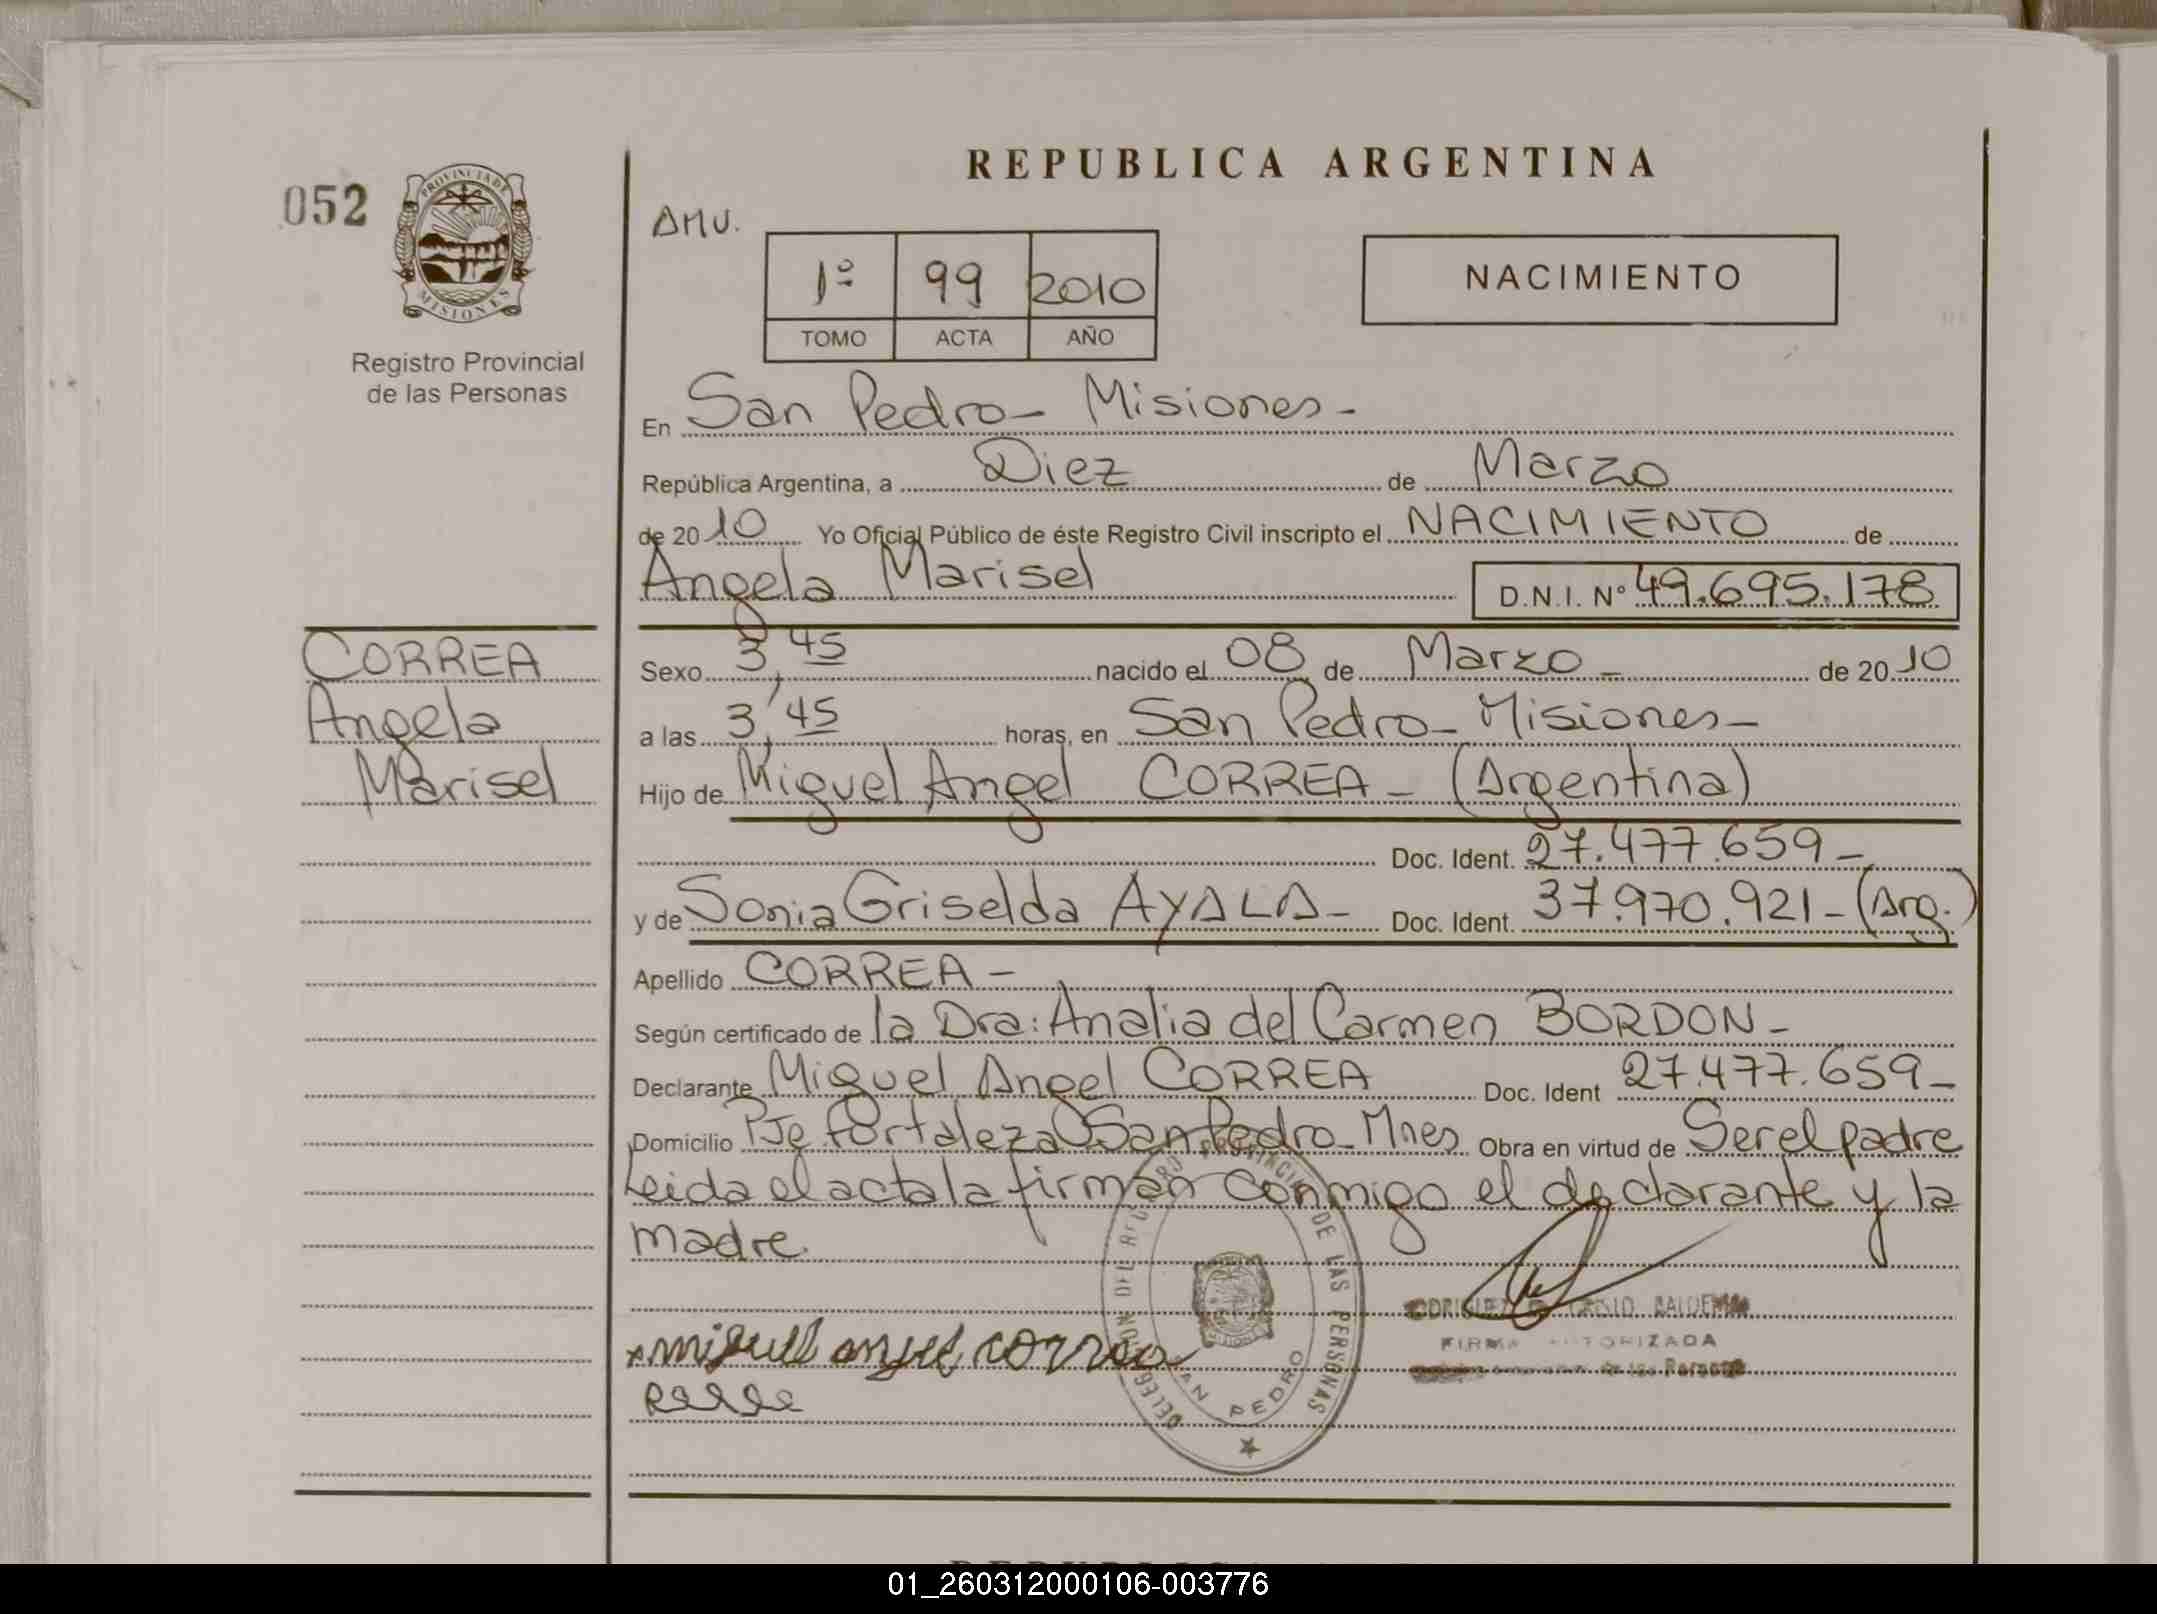 REPUBLICA ARGENTINA
052
PROVINCIA DE MISIONES
Registro Provincial
de las Personas
AMU.
1º 99 2010
TOMO ACTA AÑO
NACIMIENTO
En San Pedro - Misiones -
República Argentina, a Diez de Marzo
de 2010 Yo Oficial Público de éste Registro Civil inscripto el NACIMIENTO de
Angela Marisel D.N.I. Nº 49.695.178
CORREA
Angela
Marisel
Sexo 3,45 nacido el 08 de Marzo - de 2010
a las 3,45 horas, en San Pedro - Misiones -
Hijo de Miguel Angel CORREA - (Argentina)
Doc. Ident. 27.477.659 -
y de Sonia Griselda AYALA - Doc. Ident. 37.970.921 - (Arg.)
Apellido CORREA -
Según certificado de la Dra: Analia del Carmen BORDON -
Declarante Miguel Angel CORREA Doc. Ident 27.477.659 -
Domicilio Pje Fortaleza San Pedro - Mnes Obra en virtud de Ser el padre
Leida el acta la firman conmigo el declarante y la
madre.
DELEGACION DEL REGISTRO PROVINCIAL DE LAS PERSONAS
SAN PEDRO
FIRMA AUTORIZADA
de las Personas
x miguel angel correa
01_260312000106-003776